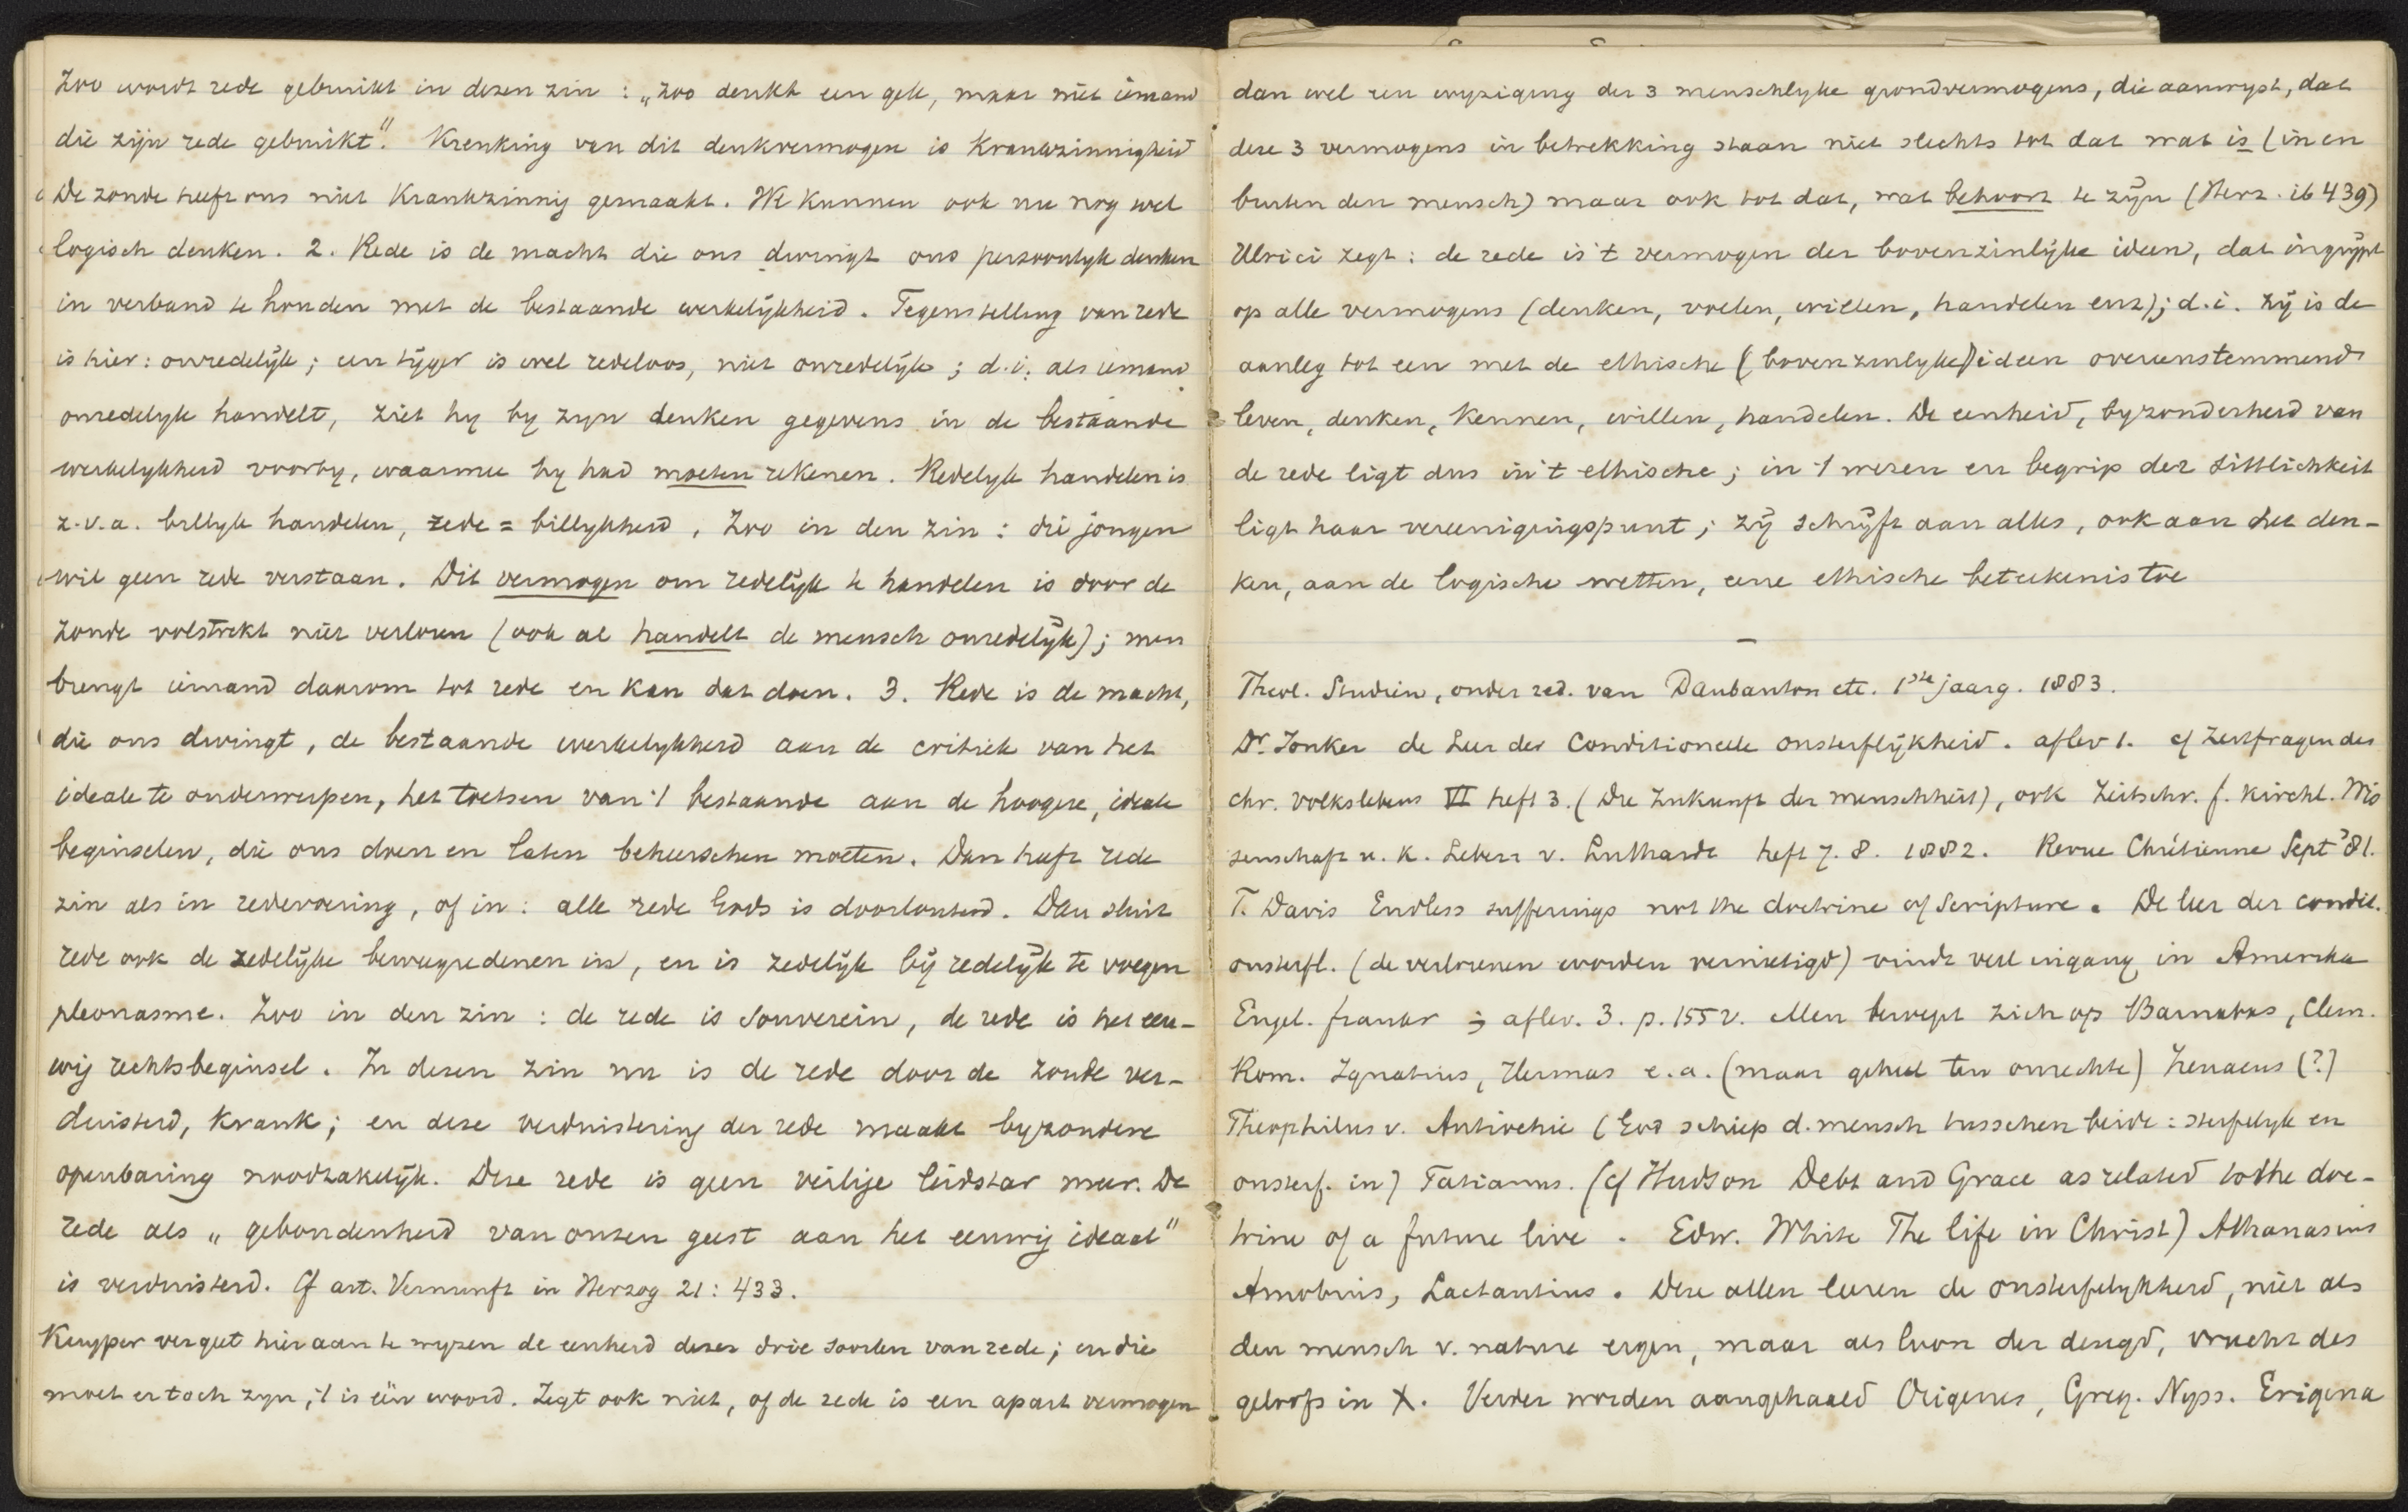 Zoo wordt rede gebruikt in dezen zin : „zoo denkt een gek, maar niet iemand
die zijn rede gebruikt". Krenking van dit denkvermogen is Krankzinnigheid
De zonde heeft ons niet Krankzinnig gemaakt. We kunnen ook nu nog wel
logisch denken. 2. Rede is de macht die ons dwingt ons persoonlyk denken
in verband te houden met de bestaande werkelijkheid. Tegenstelling van rede
is hier: onredelijk; een tijger is wel redeloos, niet onredelijk; d.i. als iemand
onredelyk handelt, ziet hy by zyn denken gegevens in de bestaande
werkelykheid voorby, waarmee hy had moeten rekenen. Redelyk handelen is
z.v.a. billyk handelen, rede = billykheid, Zoo in den zin : die jongen
wil geen rede verstaan. Dit vermogen om redelijk te handelen is door de
zonde volstrekt niet verloren (ook al handelt de mensch onredelijk); men
brengt iemand daarom tot rede en kan dat doen. 3. Rede is de macht,
die ons dwingt, de bestaande werkelykheid aan de critiek van het
ideale te onderwerpen, het toetsen van 't bestaande aan de hoogere, ideale
beginselen, die ons doen en laten beheerschen moeten. Dan heeft rede
zin als in redevoering, of in : alle rede Gods is doorlouterd. Dan sluit
rede ook de zedelijke beweegredenen in, en is zedelijk bij redelijk te voegen
pleonasme. Zoo in den zin : de rede is souverein, de rede is het eeu-
wig rechtsbeginsel. In dezen zin nu is de rede door de zonde ver-
duisterd, krank; en deze verduistering der rede maakt byzondere
openbaring noodzakelijk. Deze rede is geen veilige leidstar meer. De
rede als „gebondenheid van onzen geest aan het eeuwig ideaal"
is verduisterd. Cf art. Vernunft in Herzog 21: 433.
Kuyper vergeet hier aan te wyzen de eenheid dezer drie soorten van rede; en die
moet er toch zyn, 't is één woord. Zegt ook niet, of de rede is een apart vermogen
dan wel een wyziging der 3 menschlyke grondvermogens, die aanwyst, dat
deze 3 vermogens in betrekking staan niet slechts tot dat wat is (in en
buiten den mensch) maar ook tot dat, wat behoort te zijn (Herz. ib 439)
Ulrici zegt : de rede is 't vermogen der bovenzinlijke ideen, dat ingrijpt
op alle vermogens (denken, voelen, willen, handelen enz); d.i. zij is de
aanleg tot een met de ethische (bovenzinlyke) ideen overeenstemmend
leven, denken, kennen, willen, handelen. De eenheid, byzonderheid van
de rede ligt dus in 't ethische; in 't wezen en begrip der Sittlichkeit
ligt haar vereenigingspunt; zij schrijft aan alles, ook aan het den-
ken, aan de logische wetten, eene ethische beteekenis toe
—
Theol. Studiën, onder red. van Daubanton etc. 1ste jaarg. 1883.
Dr. Jonker de Leer der Conditioneele onsterflijkheid. aflev 1. cf Zeitfragen des
chr. Volkslebens VI heft 3. (Die Zukunft der menschheit), ook Zeitschr. f. kirchl. Wis
senschaft u. k. Leben v. Luthardt heft 7. 8. 1882. Revue Chrétienne Sept '81.
T. Davis Endless sufferings not the doctrine of Scripture. De leer der condit.
onsterfl. (de verlorenen worden vernietigd) vindt veel ingang in Amerika
Engel. frankr ; aflev. 3. p. 155 v. Men beroept zich op Barnabas, Clem.
Rom. Ignatius, Hermas e.a. (maar geheel ten onrechte) Irenaeus (?)
Theophilus v. Antiochie (God schiep d. mensch tusschen beide : sterfelyk en
onsterf. in) Tatianus. (cf Hudson Debt and Grace as related to the doc-
trine of a future live. Edw. White The life in Christ) Athanasius
Arnobius, Lactantius. Deze allen leeren de onsterfelykheid, niet als
den mensch v. nature eigen, maar als loon der deugd, vrucht des
geloofs in X. Verder worden aangehaald Origenes, Greg. Nyss. Erigena